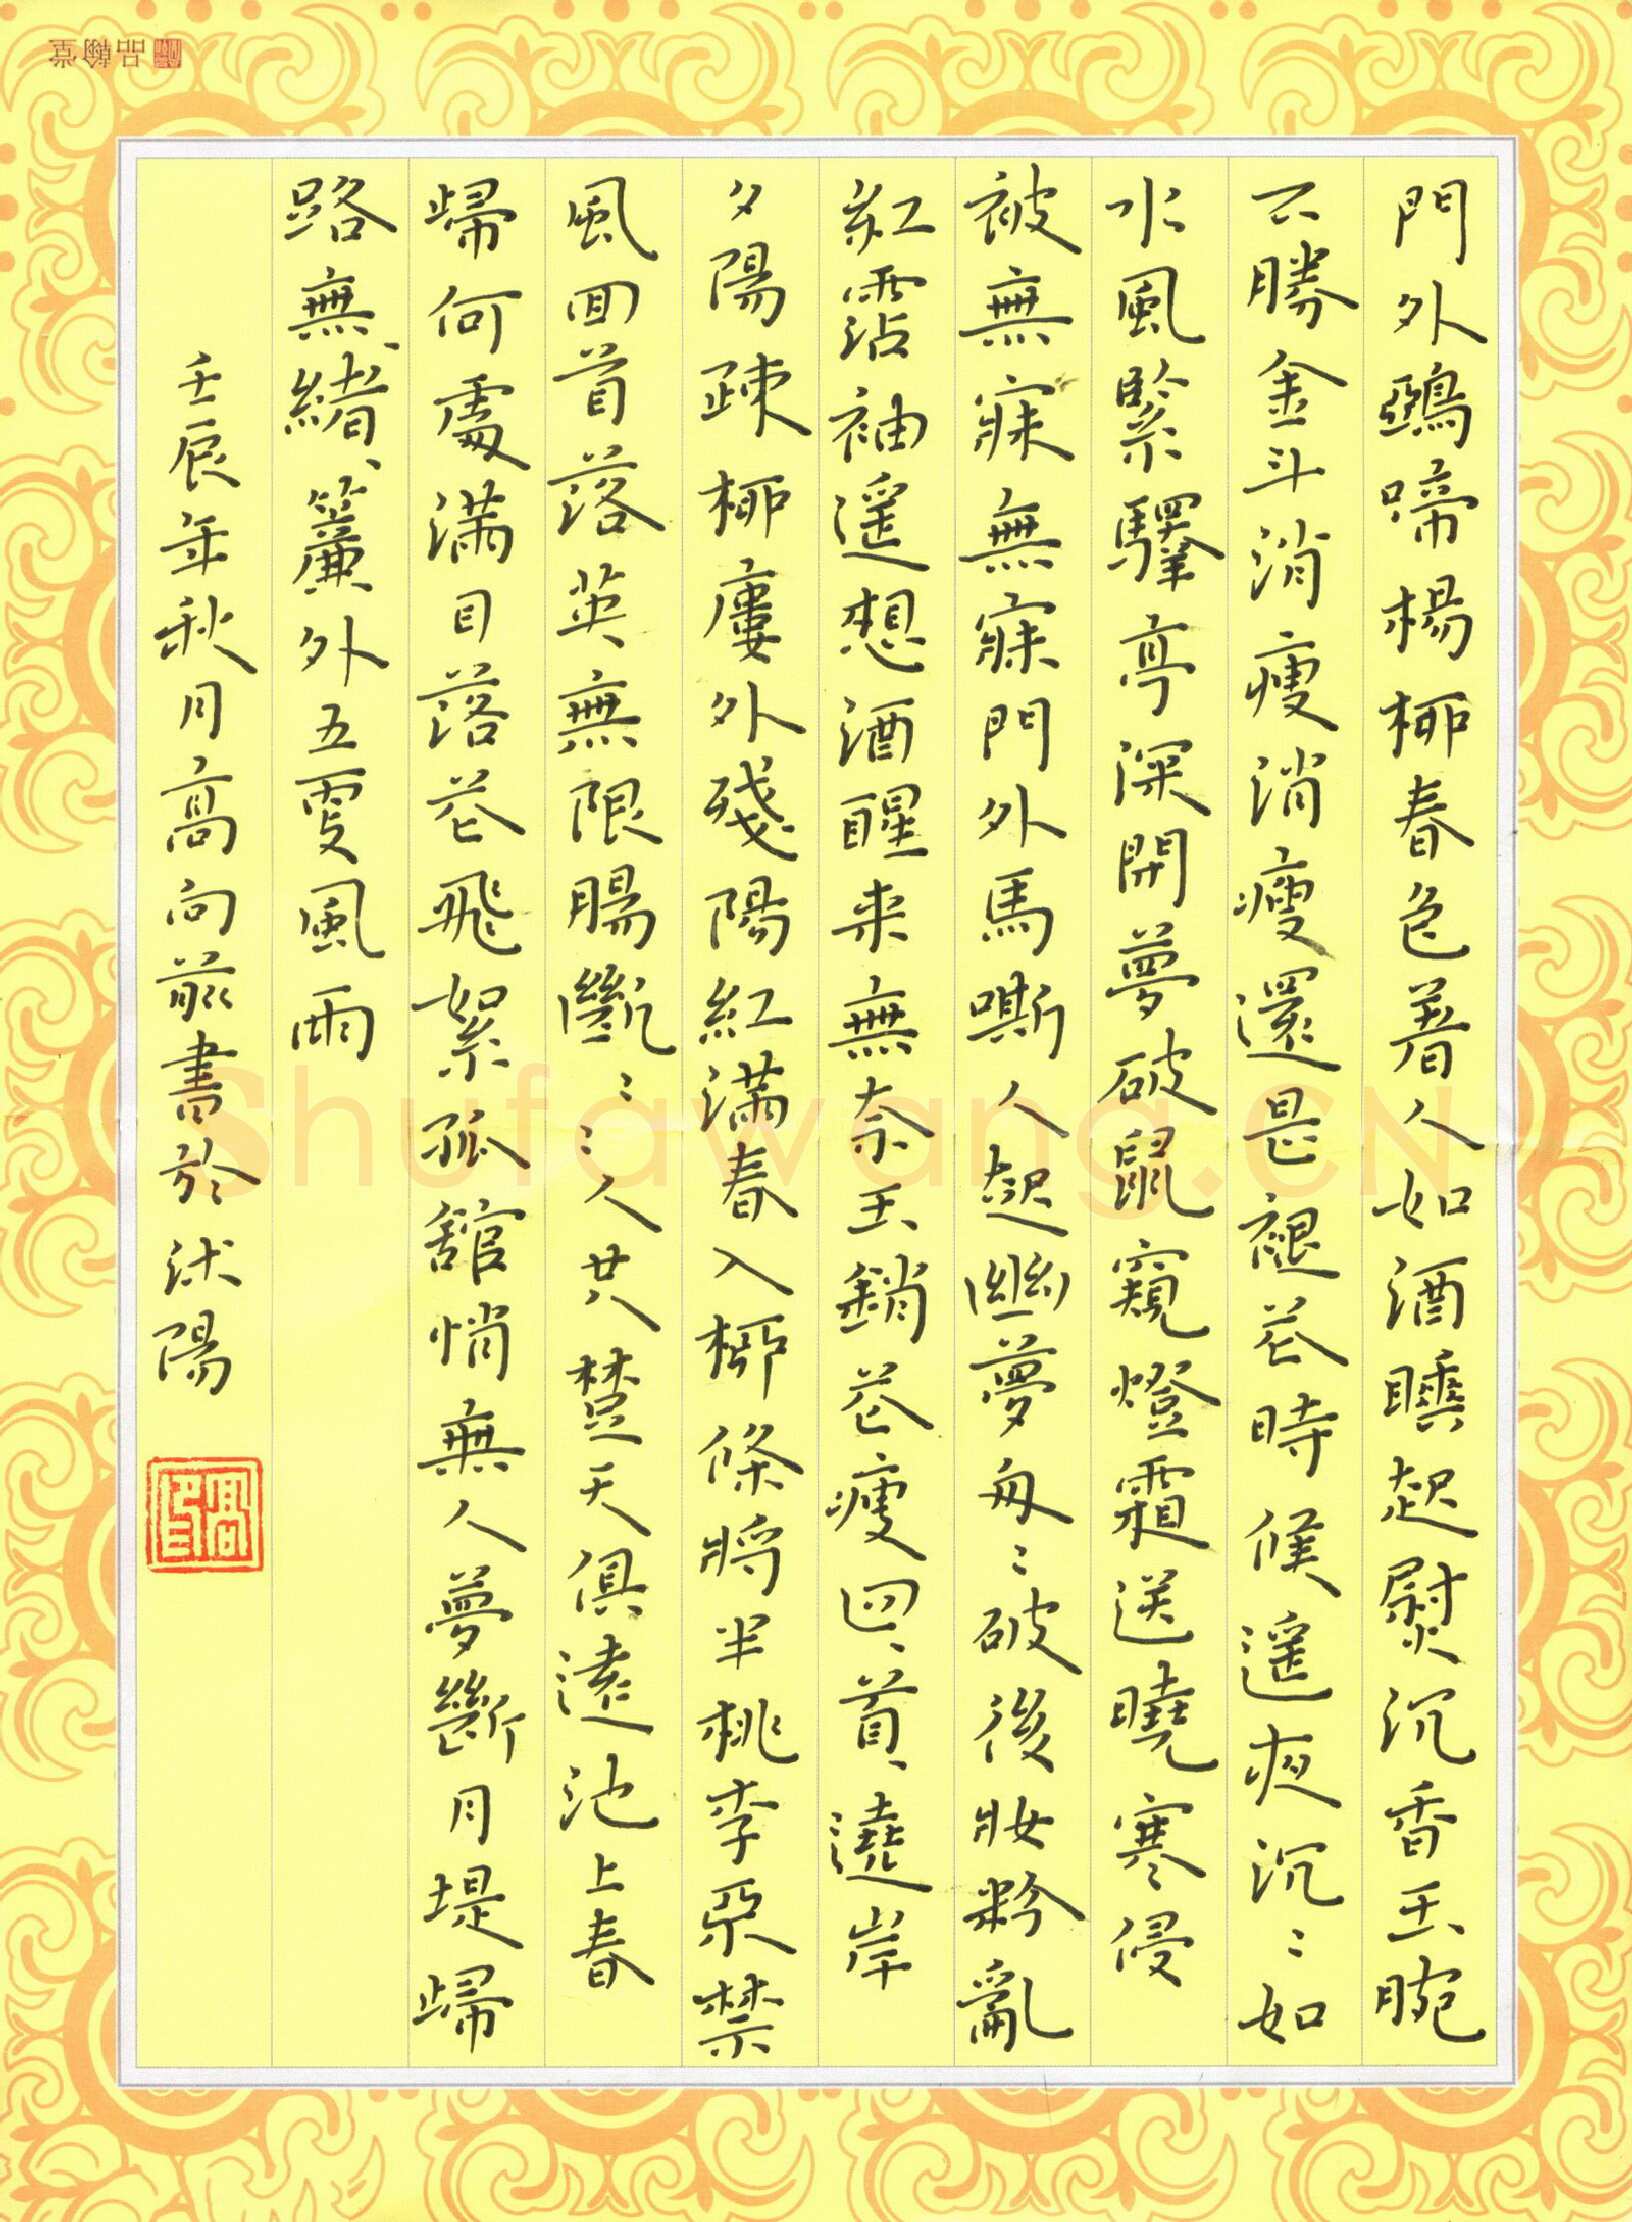 品翰堂
門外鵶啼楊柳春色着人如酒睡起熨沉香玉腕
不勝金斗消瘦消瘦還是褪花時候遥夜沉〻如
水風緊驛亭深開夢破鼠窺燈霜送曉寒侵
被無寐無寐門外馬嘶人起幽夢匆〻破後妝粉亂
紅霑袖遥想酒醒来無奈玉銷花瘦回首遶岸
夕陽疎柳樓外殘陽紅滿春入柳條將半桃李不禁
風回首落英無限腸斷〻〻人共楚天俱遠池上春
歸何處滿目落花飛絮孤館悄無人夢斷月堤歸
路無緒簾外五更風雨
壬辰年秋月高向前書於沭陽
Shufawang.CN